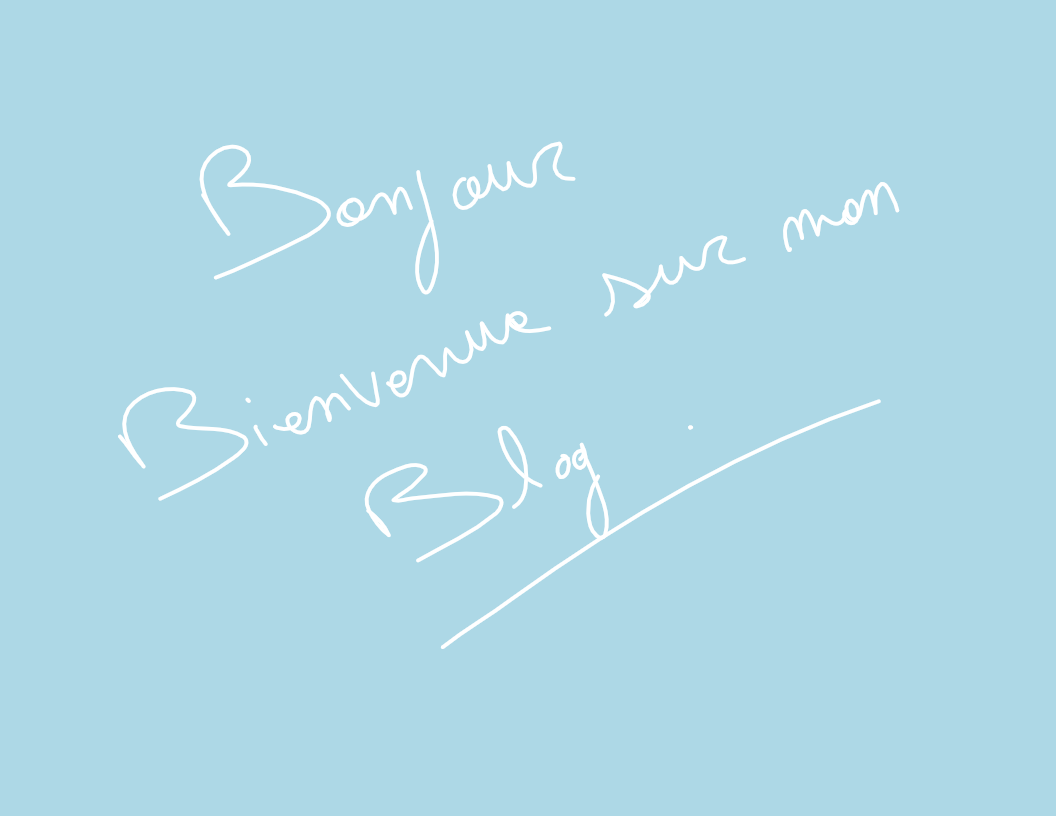 Bonjour
Bienvenue sur mon
Blog.